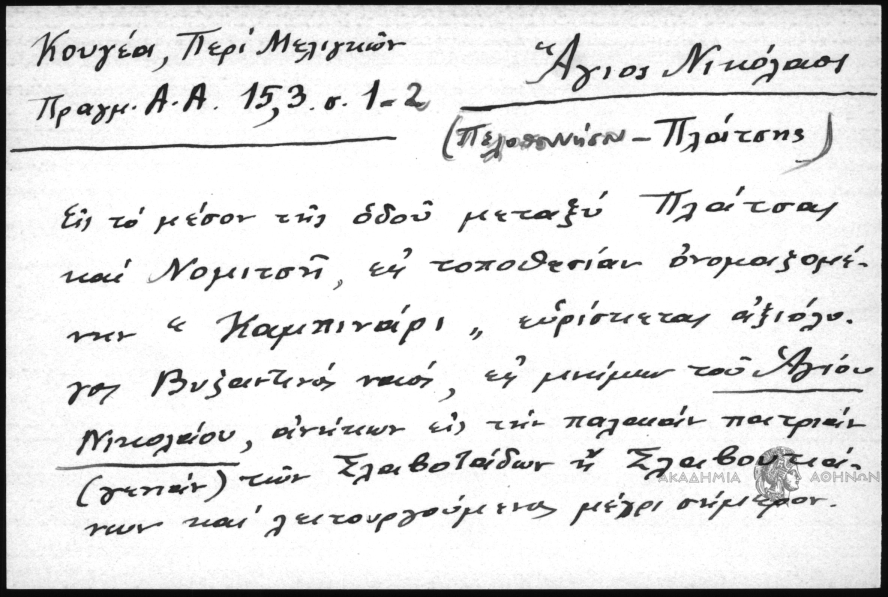 Κουγέα, Περί Μελιγκῶν
Πραγμ. Α.Α. 15,3. σ. 1-2
Ἅγιος Νικόλαος
(Πελοποννήσου - Πλάτσης)
Εἰς τό μέσον τῆς ὁδοῦ μεταξύ Πλάτσας
καί Νομιτσῆ, εἰς τοποθεσίαν ὀνομαζομέ-
νην "Καμπινάρι„ εὑρίσκεται ἀξιόλο-
γος Βυζαντινός ναός, εἰς μνήμην τοῦ Ἁγίου
Νικολάου, ἀνήκων εἰς τήν παλαιάν πατριάν
(γενεάν) τῶν Σλαβοϊάδων ἤ Σλαβουτιά-
νων καί λειτουργούμενος μέχρι σήμερον.
ΑΚΑΔΗΜΙΑ ΑΘΗΝΩΝ